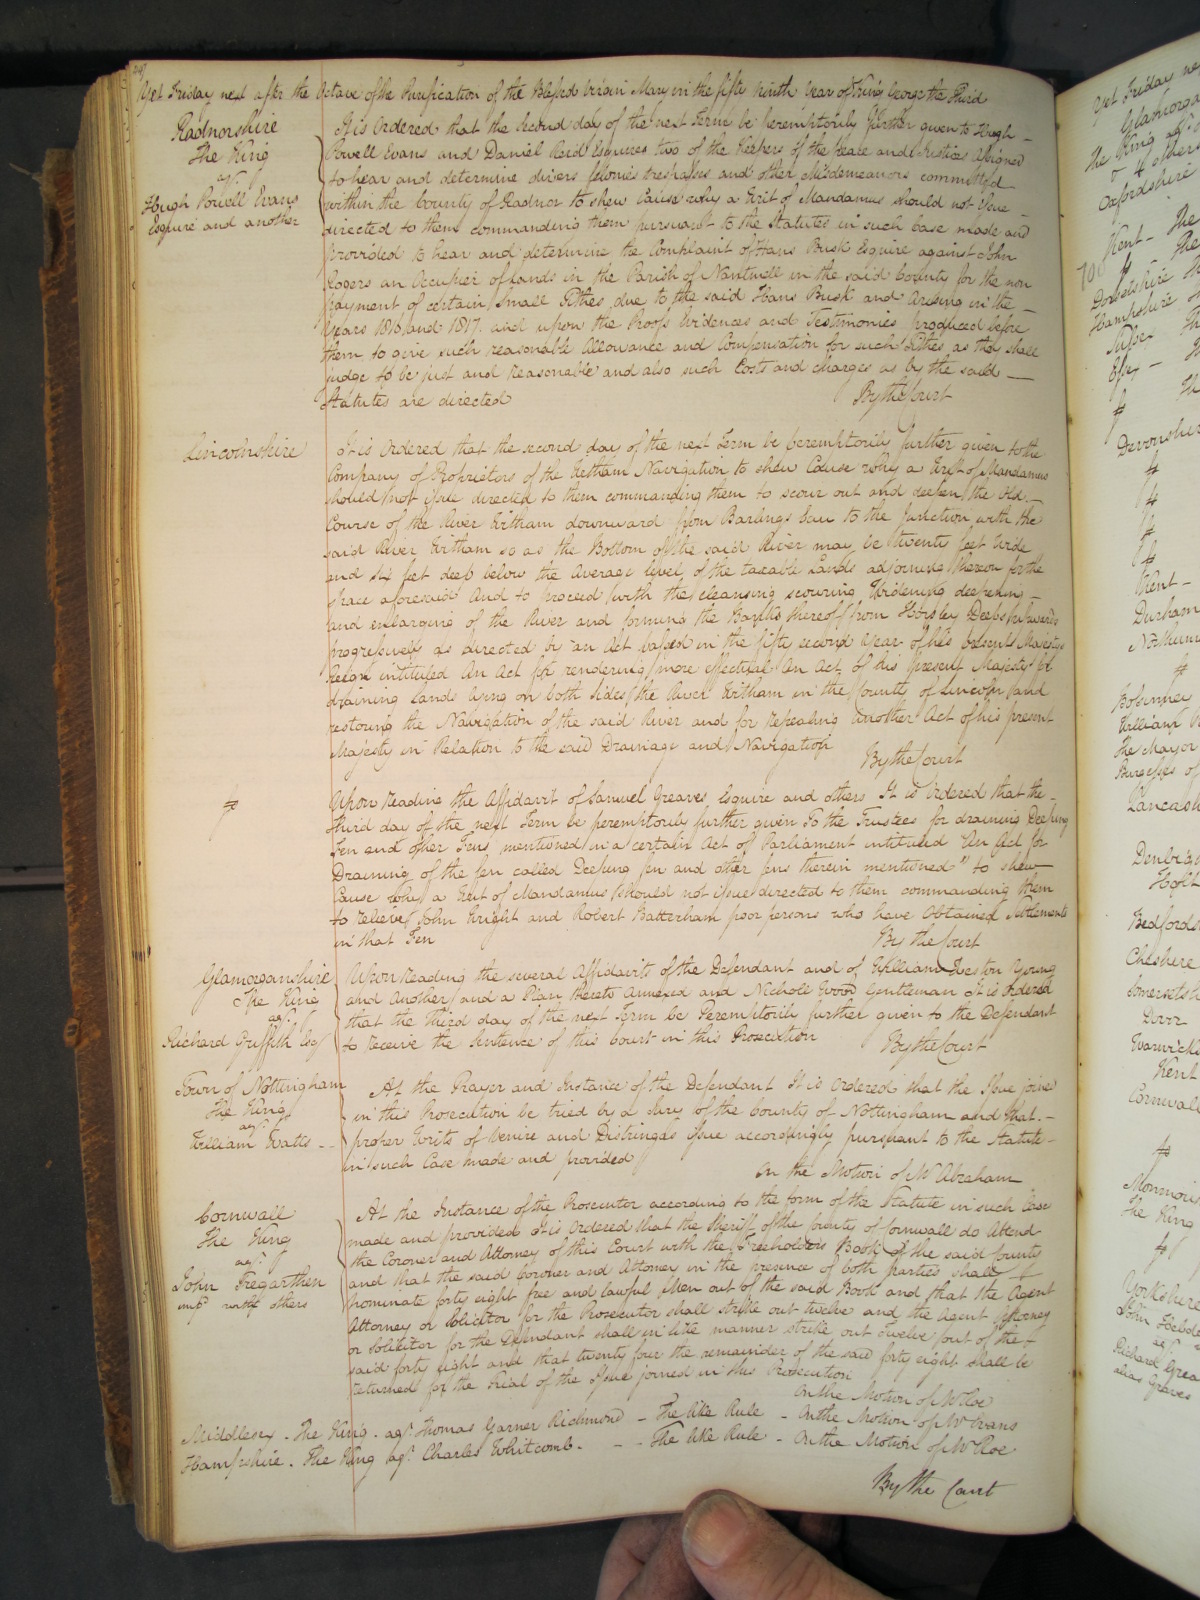 Yet Friday next after the Octave of the Purification of the Blessed Virgin Mary in the fifty ninth Year of King George the Third
Radnorshire
The King
agt.
Hugh Powell Evans
Esquire and another
It is Ordered that the second day of the next Term be peremptorily further given to Hugh
Powell Evans and Daniel Reid Esquires two of the Keepers of the Peace and Justices assigned
to hear and determine divers felonies trespasses and other Misdemeanors committed
within the County of Radnor to shew Cause why a Writ of Mandamus should not Issue
directed to them commanding them pursuant to the Statutes in such case made and
provided to hear and determine the Complaint of Hans Busk Esquire against John
Rogers an Occupier of lands in the Parish of Nantmell in the said County for the non
payment of certain Small Tithes due to the said Hans Busk and Arising in the
Years 1816 and 1817. and upon the Proofs Evidences and Testimonies produced before
them to give such reasonable Allowance and Compensation for such Tithes as they shall
judge to be just and reasonable and also such Costs and charges as by the said
Statutes are directed
By the Court
Lincolnshire
It is Ordered that the second day of the next Term be peremptorily further given to the
Company of Proprietors of the Witham Navigation to shew Cause why a Writ of Mandamus
should not issue directed to them commanding them to scour out and deepen the Old
Course of the River Witham downward from Barlings Eau to the Junction with the
said River Witham so as the Bottom of the said River may be twenty feet Wide
and six feet deep below the average level of the taxable Lands adjoining thereon for the
space aforesaid And to proceed with the cleansing scouring Widening deepening
and enlarging of the River and forming the Banks thereof from Horsley Deeps upwards
progressively as directed by an Act passed in the fifty second Year of his present Majestys
Reign intituled An Act for rendering more effectual An Act of his present Majesty for
draining Lands lying on both sides the River Witham in the County of Lincoln and
restoring the Navigation of the said River and for repealing another Act of his present
Majesty in Relation to the said Drainage and Navigation
By the Court
Upon Reading the Affidavit of Samuel Greaves Esquire and others It is Ordered that the
third day of the next Term be peremptorily further given To the Trustees for draining Deeping
Fen and other Fens mentioned in a certain Act of Parliament intituled "An Act for
Draining of the fen called Deeping fen and other fens therein mentioned" to shew
Cause why a Writ of Mandamus should not issue directed to them commanding them
to relieve John Wright and Robert Batterham poor persons who have Obtained Settlements
in that Fen
By the Court
Glamorganshire
The King
agt.
Richard Griffith Esqr
Upon reading the several Affidavits of the Defendant and of William Weston Young
and Another and a Plan thereto annexed and Nicholl Wood Gentleman It is Ordered
that the third day of the next Term be Peremptorily further given to the Defendant
to receive the Sentence of this Court in this Prosecution
By the Court
Town of Nottingham
The King
agt.
William Watts
At the Prayer and Instance of the Defendant It is Ordered that the Issue joined
in this Prosecution be tried by a Jury of the County of Nottingham and that
proper Writs of Venire and Distringas issue accordingly pursuant to the Statute
in such Case made and provided
On the Motion of Mr Abraham
Cornwall
The King
agt.
John Tregarthen
impd. with others
At the Instance of the Prosecutor according to the form of the Statute in such Case
made and provided It is Ordered that the Sheriff of the County of Cornwall do Attend
the Coroner and Attorney of this Court with the Freeholders Book of the said County
and that the said Coroner and Attorney in the presence of both parties shall
nominate forty eight free and lawful Men out of the said Book and that the Agent
Attorney or Solicitor for the Prosecutor shall strike out twelve and the Agent Attorney
or Solicitor for the Defendant shall in like manner strike out Twelve out of the
said forty eight and that twenty four the remainder of the said forty eight shall be
returned for the Trial of the Issue joined in this Prosecution
On the Motion of Mr Roe
Middlesex - The King - agt. Thomas Garner Richmond - The like Rule - On the Motion of Mr Evans
Hampshire - The King agt. Charles Whitcomb - - - The like Rule - On the Motion of Mr Roe
By the Court
Yet Friday
Glamorga
The King agt.
& 4 others
Oxfordshire
Kent - The
Dorsetshire
Hampshire
Essex -
Devonshire
Kent -
Durham
William
The Mayor
Burgesses of
Lancash
Denbigh
Holt
Bedfords
Cheshire
Somersets
Dorr
Warwick
Kent
Cornwall
Monmou
The King
Yorkshire
John
agt.
Richard Grea
alias Graves